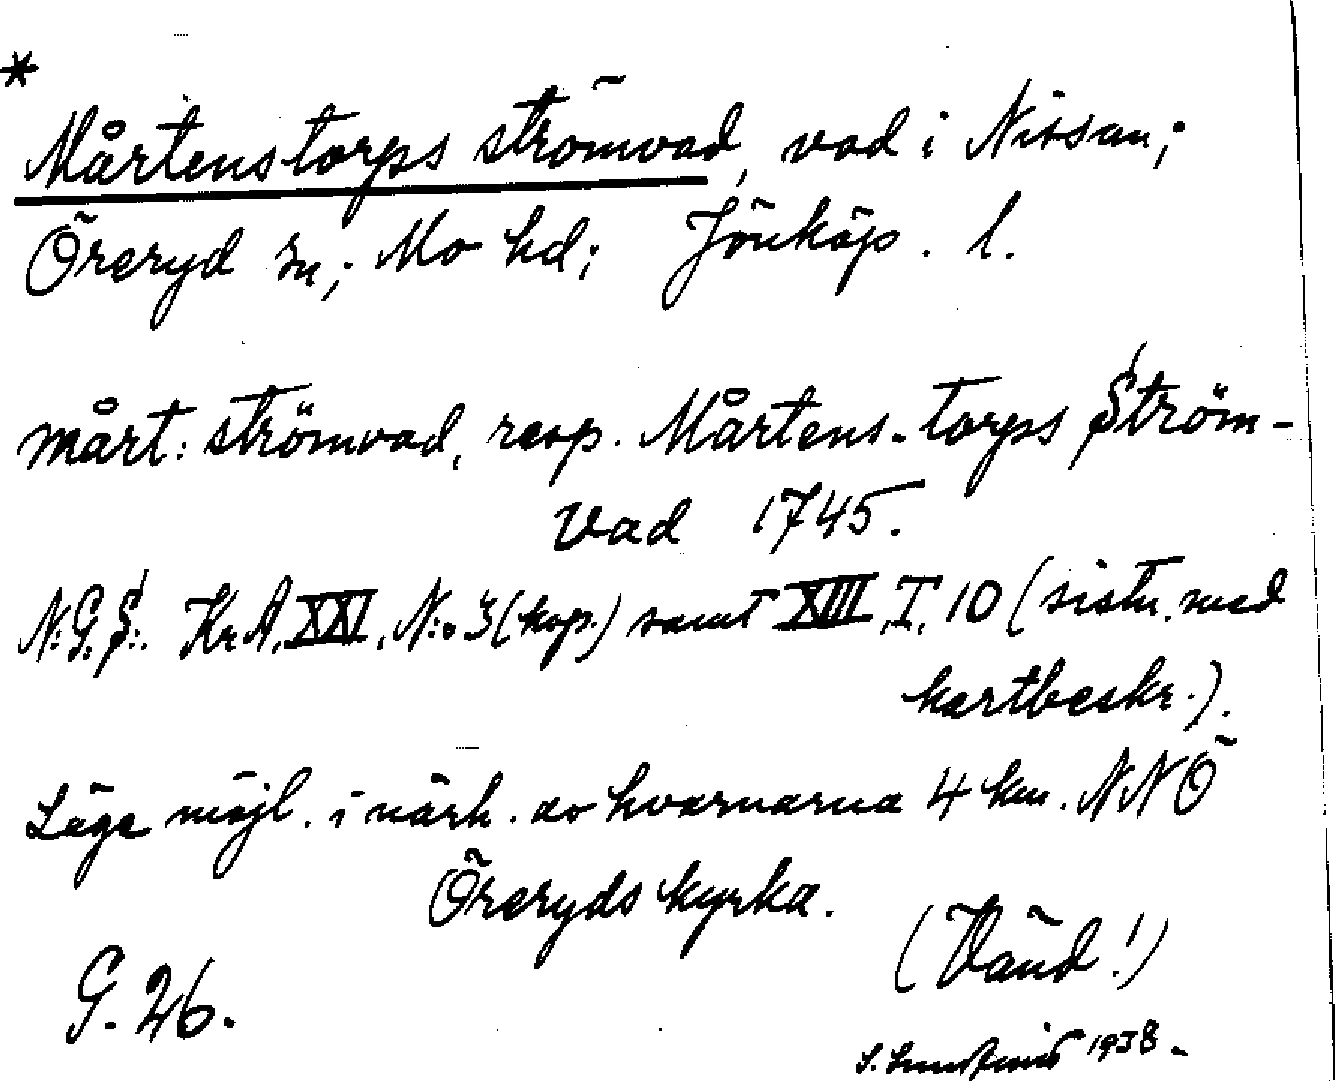 *
Mårtenstorps strömvad, vad i Nissan;
Öreryd sn; Mo hd; Jönköp. l.
Mårt: strömvad, resp. Mårtens-torps Ström-
Vad 1745.
N:G.S:. Kr.A. XXI, N:o 3 (kop.) samt XIII, I, 10 (sistn. med
kartbeskr.).
Läge möjl. i närh. av kvarnarna 4 km. NNÖ
Öreryds kyrka.
(Vänd!)
G. 26.
S. 1938.